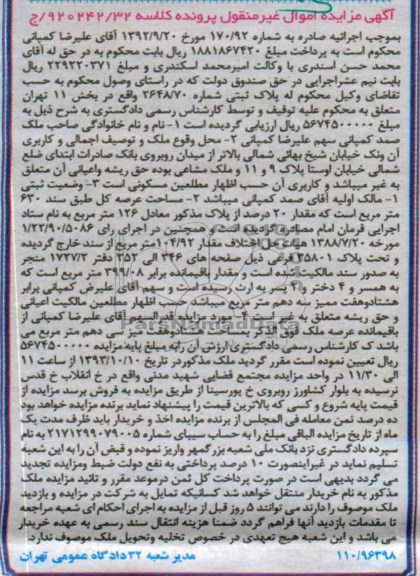 آگهی مزایده اموال غیرمنقول پرونده کلاسه ۹۲۰۲۴۲/۳۲/ج
بموجب اجرائیه صادره به شماره ۱۷۰/۹۲ مورخ ۱۳۹۲/۹/۲۰ آقای علیرضا کمپانی
محکوم است به پرداخت مبلغ ۱۸۸۱۸۶۷۴۲۰ ریال بابت محکوم به در حق له آقای
محمد حسن اسندری با وکالت امیرمحمد اسکندری و مبلغ ۲۲۹۲۲۰۳۷۱ ریال
بابت نیم عشراجرایی در حق صندوق دولت که در راستای وصول محکوم به حسب
تقاضای وکیل محکوم له پلاک ثبتی شماره ۲۶۴۸/۷۰ واقع در بخش ۱۱ تهران
متعلق به محکوم علیه توقیف و توسط کارشناس رسمی دادگستری به شرح ذیل به
مبلغ ۵۶۷۴۵۰۰۰۰۰ ریال ارزیابی گردیده است ۱- نام و نام خانوادگی صاحب ملک
صمد کمپانی سهم علیرضا کمپانی ۲- محل وقوع ملک و توصیف اجمالی و کاربری
آن ونک خیابان شیخ بهائی شمالی بالاتر از میدان روبروی بانک صادرات ابتدای ضلع
شمالی خیابان اوستا پلاک ۹ و ۱۱ و ملک مشاعی بوده حق ریشه واعیانی آن متعلق
به غیر میباشد و کاربری آن حسب اظهار مطلعین مسکونی است ۳- وضعیت ثبتی
۱- مالک اولیه آقای صمد کمپانی میباشد ۲- مساحت عرصه کل طبق سند ۶۳۰
متر مربع است که مقدار ۲۰ درصد از پلاک مذکور معادل ۱۲۶ متر مربع به نام ستاد
اجرایی فرمان امام مصادره گردیده است و همچنین در اجرای رای ۱/۲۲/۹۰/۵۰۸۶
مورخه ۱۳۸۸/۷/۲۰ هیات حل اختلاف مقدار ۱۰۴/۹۲ متر مربع از سند خارج گردیده
و تحت پلاک ۳۵۸۰۱ فرعی ذیل صفحه های ۳۴۶ الی ۳۵۲ دفتر ۱۷۲۷/۲ منجر
به صدور سند مالکیت شده است و مقدار باقیمانده برابر ۳۹۹/۰۸ متر مربع است که
به همسر و ۴ دختر و ۳ پسر به ارث رسیده است و سهم آقای علیرضا کمپانی برابر
هشتادوهفت ممیز سه دهم متر مربع میباشد حسب اظهار مطلعین مالکیت اعیانی
و حق ریشه متعلق به غیر است ۴- مورد مزایده قدرالسهم آقای علیرضا کمپانی از
باقیمانده عرصه ملک فوق الذکر به مساحت هشتادوهفت ممیز سی دهم متر مربع می
باشد ک کارشناس رسمی دادگستری ارزش آن را به مبلغ پایه مزایده ۵۶۷۴۵۰۰۰۰۰
ریال تعیین نموده است مقرر گردید ملک مذکور در تاریخ ۱۳۹۳/۱۰/۱۰ از ساعت ۱۱
الی ۱۱/۳۰ در واحد مزایده مجتمع قضایی شهید مدنی واقع در خ انقلاب خ قدس
نرسیده به بلوار کشاورز روبروی خ پورسینا از طریق مزایده به فروش برسد مزایده از
قیمت پایه شروع و کسی که بالاترین قیمت را پیشنهاد نماید برنده مزایده خواهد بود
ده درصد ثمن معامله فی المجلس از برنده مزایده اخذ و خریدار باید ظرف مدت یک
ماه از تاریخ مزایده الباقی مبلغ را به حساب سیبای شماره ۲۱۷۱۲۹۹۰۷۹۰۰۵ به نام
سپرده دادگستری نزد بانک ملی شعبه بزرگمهر واریز نموده و قبض آن را به این شعبه
تسلیم نماید در غیراینصورت ۱۰ درصد پرداختی به نفع دولت ضبط ومزایده تجدید
می گردد بدیهی است در صورت پرداخت کل ثمن درموعد مقرر و تائید مزایده ملک
مذکور به نام خریدار منتقل خواهد شد کسانیکه تمایل به شرکت در مزایده و بازدید
ملک موصوف را دارند می توانند ۵ روز قبل از مزایده به اجرای احکام ای شعبه مراجعه
تا مقدمات بازدید آنها فراهم گردد ضمنا هزینه انتقال سند رسمی به عهده خریدار
می باشد و این شعبه هیچ تعهدی در خصوص تخلیه وتحویل ملک موصوف ندارد.
۱۱۰/۹۶۳۹۸ مدیر شعبه ۳۲ دادگاه عمومی تهران